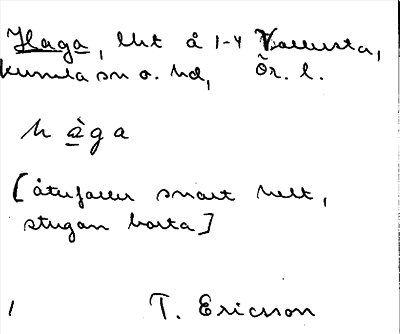 Haga, lht å 1-4 Vallersta,
Kumla sn o. hd, Ör. l.
h à g a
[återfaller snart helt,
stugan borta]
1 T. Ericsson